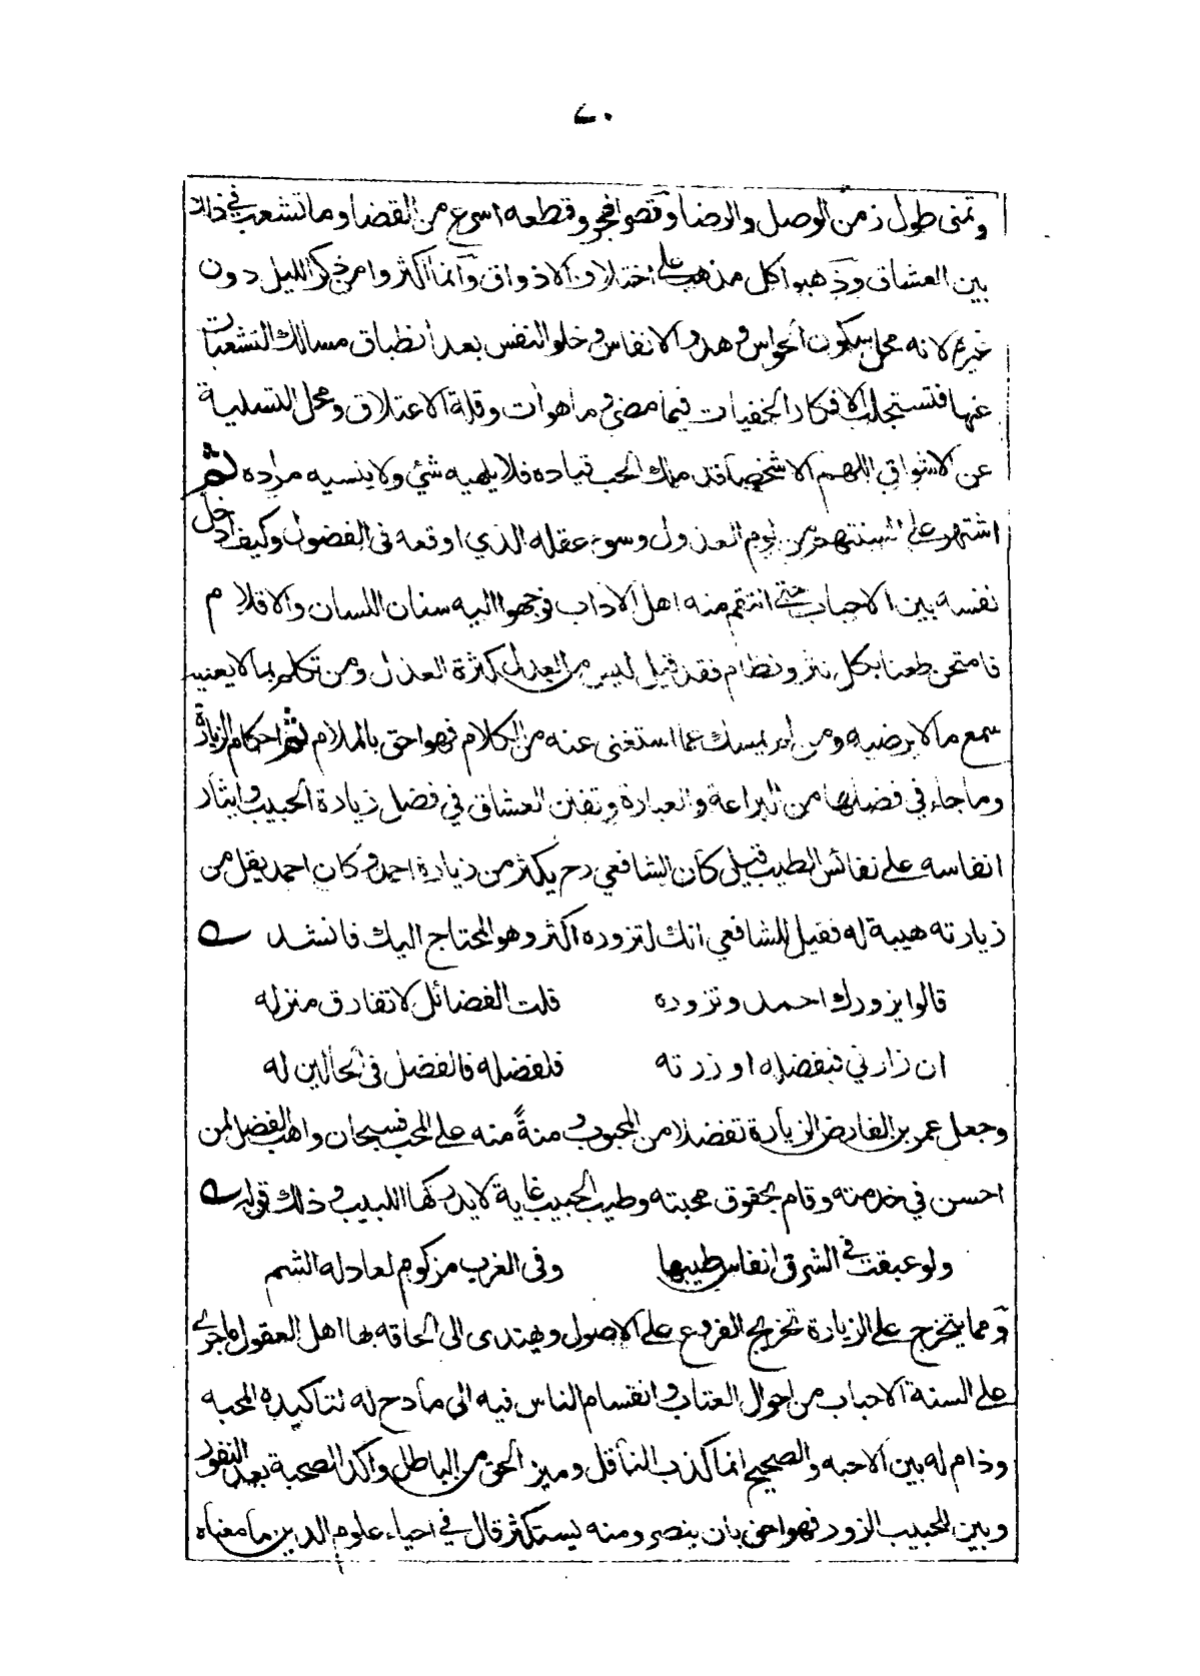 ٧٠
وتمنى طول زمن الوصل والرضا وقصر الهجر وقطعه اسرع من القضا وما تشعب في ذلك
بين العشاق وذهبوا كل مذهب على اختلاف الاذواق وانما اكثروا من ذكر الليل دون
غيره لانه محل سكون الحواس وهدو الانفاس وخلو النفس بعد انطباق مسالك التشعبات
عنها فتستجلب الافكار الخفيات فيما مضى وما هو آت وقلة الاعتلاق ومحل التسلية
عن الاشواق اللهم الا شخصا قد ملك الحب قياده فلا يلهيه شئ ولا ينسيه مراده ثم
اشتهر على السنتهم من لوم العذول وسوء عقله الذي اوقعه فى الفضول وكيف ادخل
نفسه بين الاحباب حتى انتقم منه اهل الآداب فوجهوا اليه سنان اللسان والاقلام
فامتحن طعنا بكل نثر ونظام فقد قيل ليس من العدل كثرة العذل ومن تكلم بما لا يعنيه
سمع ما لا يرضيه ومن لم يمسك عما استغنى عنه من الكلام فهو احق بالملام ثم احكام الزيارة
وما جاء في فضلها من البراعة والعبارة وتفنن العشاق في فضل زيارة الحبيب وايثار
انفاسه على نفائس الطيب قيل كان الشافعي رح يكثر من زيارة احمد وكان احمد يقل من
زيارته هيبة له فقيل للشافعي انك لتزوره اكثر وهو المحتاج اليك فانشد
قالوا يزورك احمد وتزوره قلت الفضائل لا تفارق منزله
ان زارني فبفضله او زرته فلفضله فالفضل فى الحالين له
وجعل عمر بن الفارض الزيارة تفضلا من المحبوب ومنةً منه على المحب فسبحان واهب الفضل لمن
احسن في خدمته وقام بحقوق محبته وطيب الحبيب غاية لا يدركها اللبيب وذلك قوله
ولو عبقت في الشرق انفاس طيبها وفى الغرب مزكوم لعاد له الشم
ومما يتخرج على الزيارة تخريج الفروع على الاصول ويهتدى الى الحاقه بها اهل العقول ما جرى
على السنة الاحباب من احوال العتاب وانقسام الناس فيه الى مادح له لتاكيده المحبه
وذام له بين الاحبه والصحيح انما كذب الناقل وميز الحق من الباطل واكد الصحبة بعد النفور
وبين للحبيب الزور فهو احق بان ينصر ومنه يستكثر قال في احياء علوم الدين ما معناه